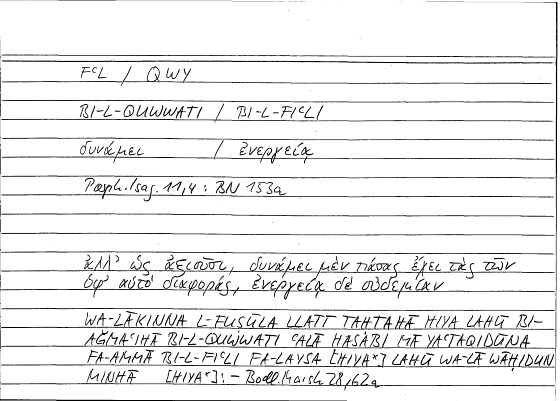 FᶜL / QWY
BI-L-QUWWATI / BI-L-FIᶜLI
δυνάμει / ἐνεργείᾳ
Porph. Isag. 11,4 : BN 153a
ἀλλ' ὡς ἀξιοῦσι, δυνάμει μὲν πάσας ἔχει τὰς τῶν
ὑφ' αὑτό διαφοράς, ἐνεργείᾳ δὲ οὐδεμίαν
WA-LĀKINNA L-FUṢŪLA LLATĪ TAḤTAHĀ HIYA LAHŪ BI-
AǦMAᶜIHĀ BI-L-QUWWATI ᶜALĀ ḤASĀBI MĀ YAᶜTAQIDŪNA
FA-AMMĀ BI-L-FIᶜLI FA-LAYSA [HIYA*] LAHŪ WA-LĀ WĀḤIDUN
MINHĀ [HIYA*]: – Bodl. Marsh 28,62a